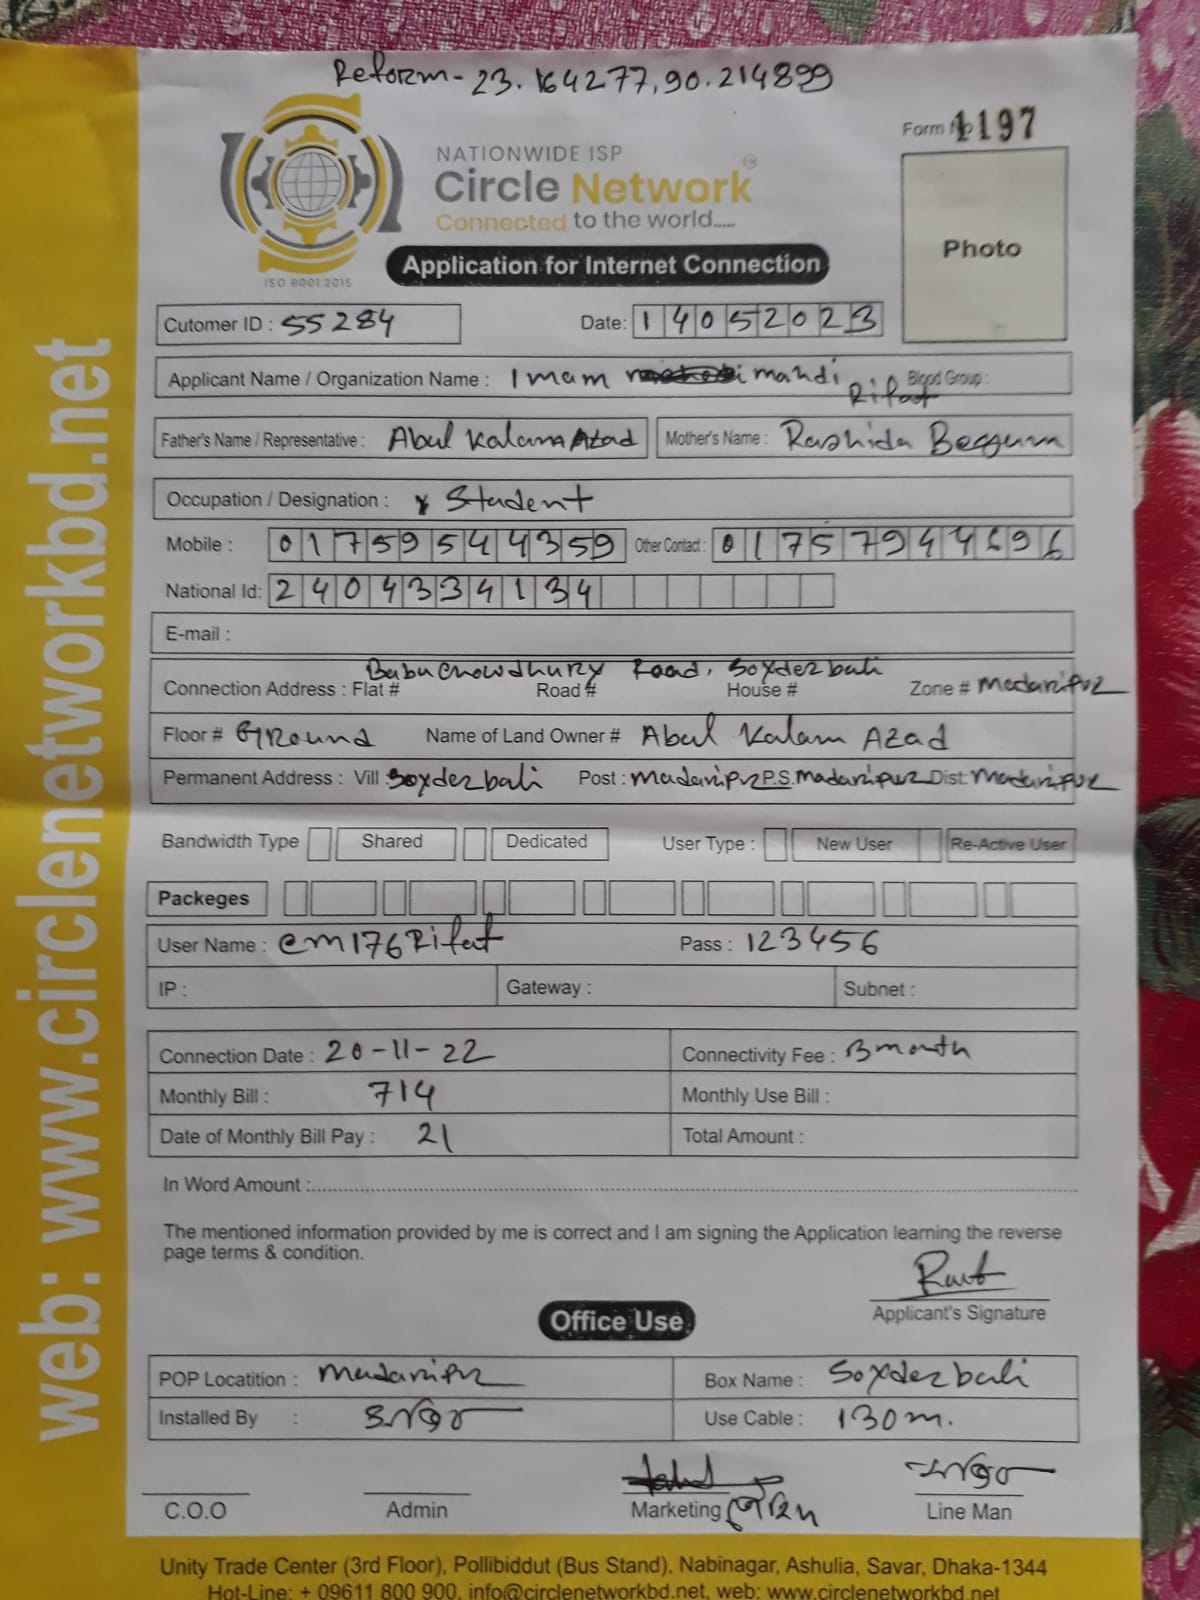 Reform - 23.164277,90.214899
Form No 1197
NATIONWIDE ISP
Circle Network
Connected to the world.....
ISO 9001:2015
Application for Internet Connection
Photo
Cutomer ID : 55284 Date: 14052023
Applicant Name / Organization Name : Imam mahdi Rifat Blood Group :
Father's Name / Representative : Abul Kalam Azad Mother's Name : Rashida Begum
Occupation / Designation : Student
Mobile : 01759544359 Other Contact : 01757944696
National Id: 2404334134
E-mail :
Babu Chowdhury Road, Soyderbali
Connection Address : Flat # Road # House # Zone # Madaripur
Floor # Ground Name of Land Owner # Abul Kalam Azad
Permanent Address : Vill Soyderbali Post : Madaripur P.S. Madaripur Dist: Madaripur
Bandwidth Type Shared Dedicated User Type : New User Re-Active User
Packeges
User Name : cm176Rifat Pass : 123456
IP : Gateway : Subnet :
Connection Date : 20-11-22 Connectivity Fee : 3 month
Monthly Bill : 714 Monthly Use Bill :
Date of Monthly Bill Pay : 21 Total Amount :
In Word Amount :
The mentioned information provided by me is correct and I am signing the Application learning the reverse
page terms & condition.
Applicant's Signature
Office Use
POP Locatition : Madaripur Box Name : Soyderbali
Installed By : Use Cable : 130m.
C.O.O Admin Marketing Line Man
Unity Trade Center (3rd Floor), Pollibiddut (Bus Stand), Nabinagar, Ashulia, Savar, Dhaka-1344
Hot-Line: + 09611 800 900, info@circlenetworkbd.net, web: www.circlenetworkbd.net
web: www.circlenetworkbd.net